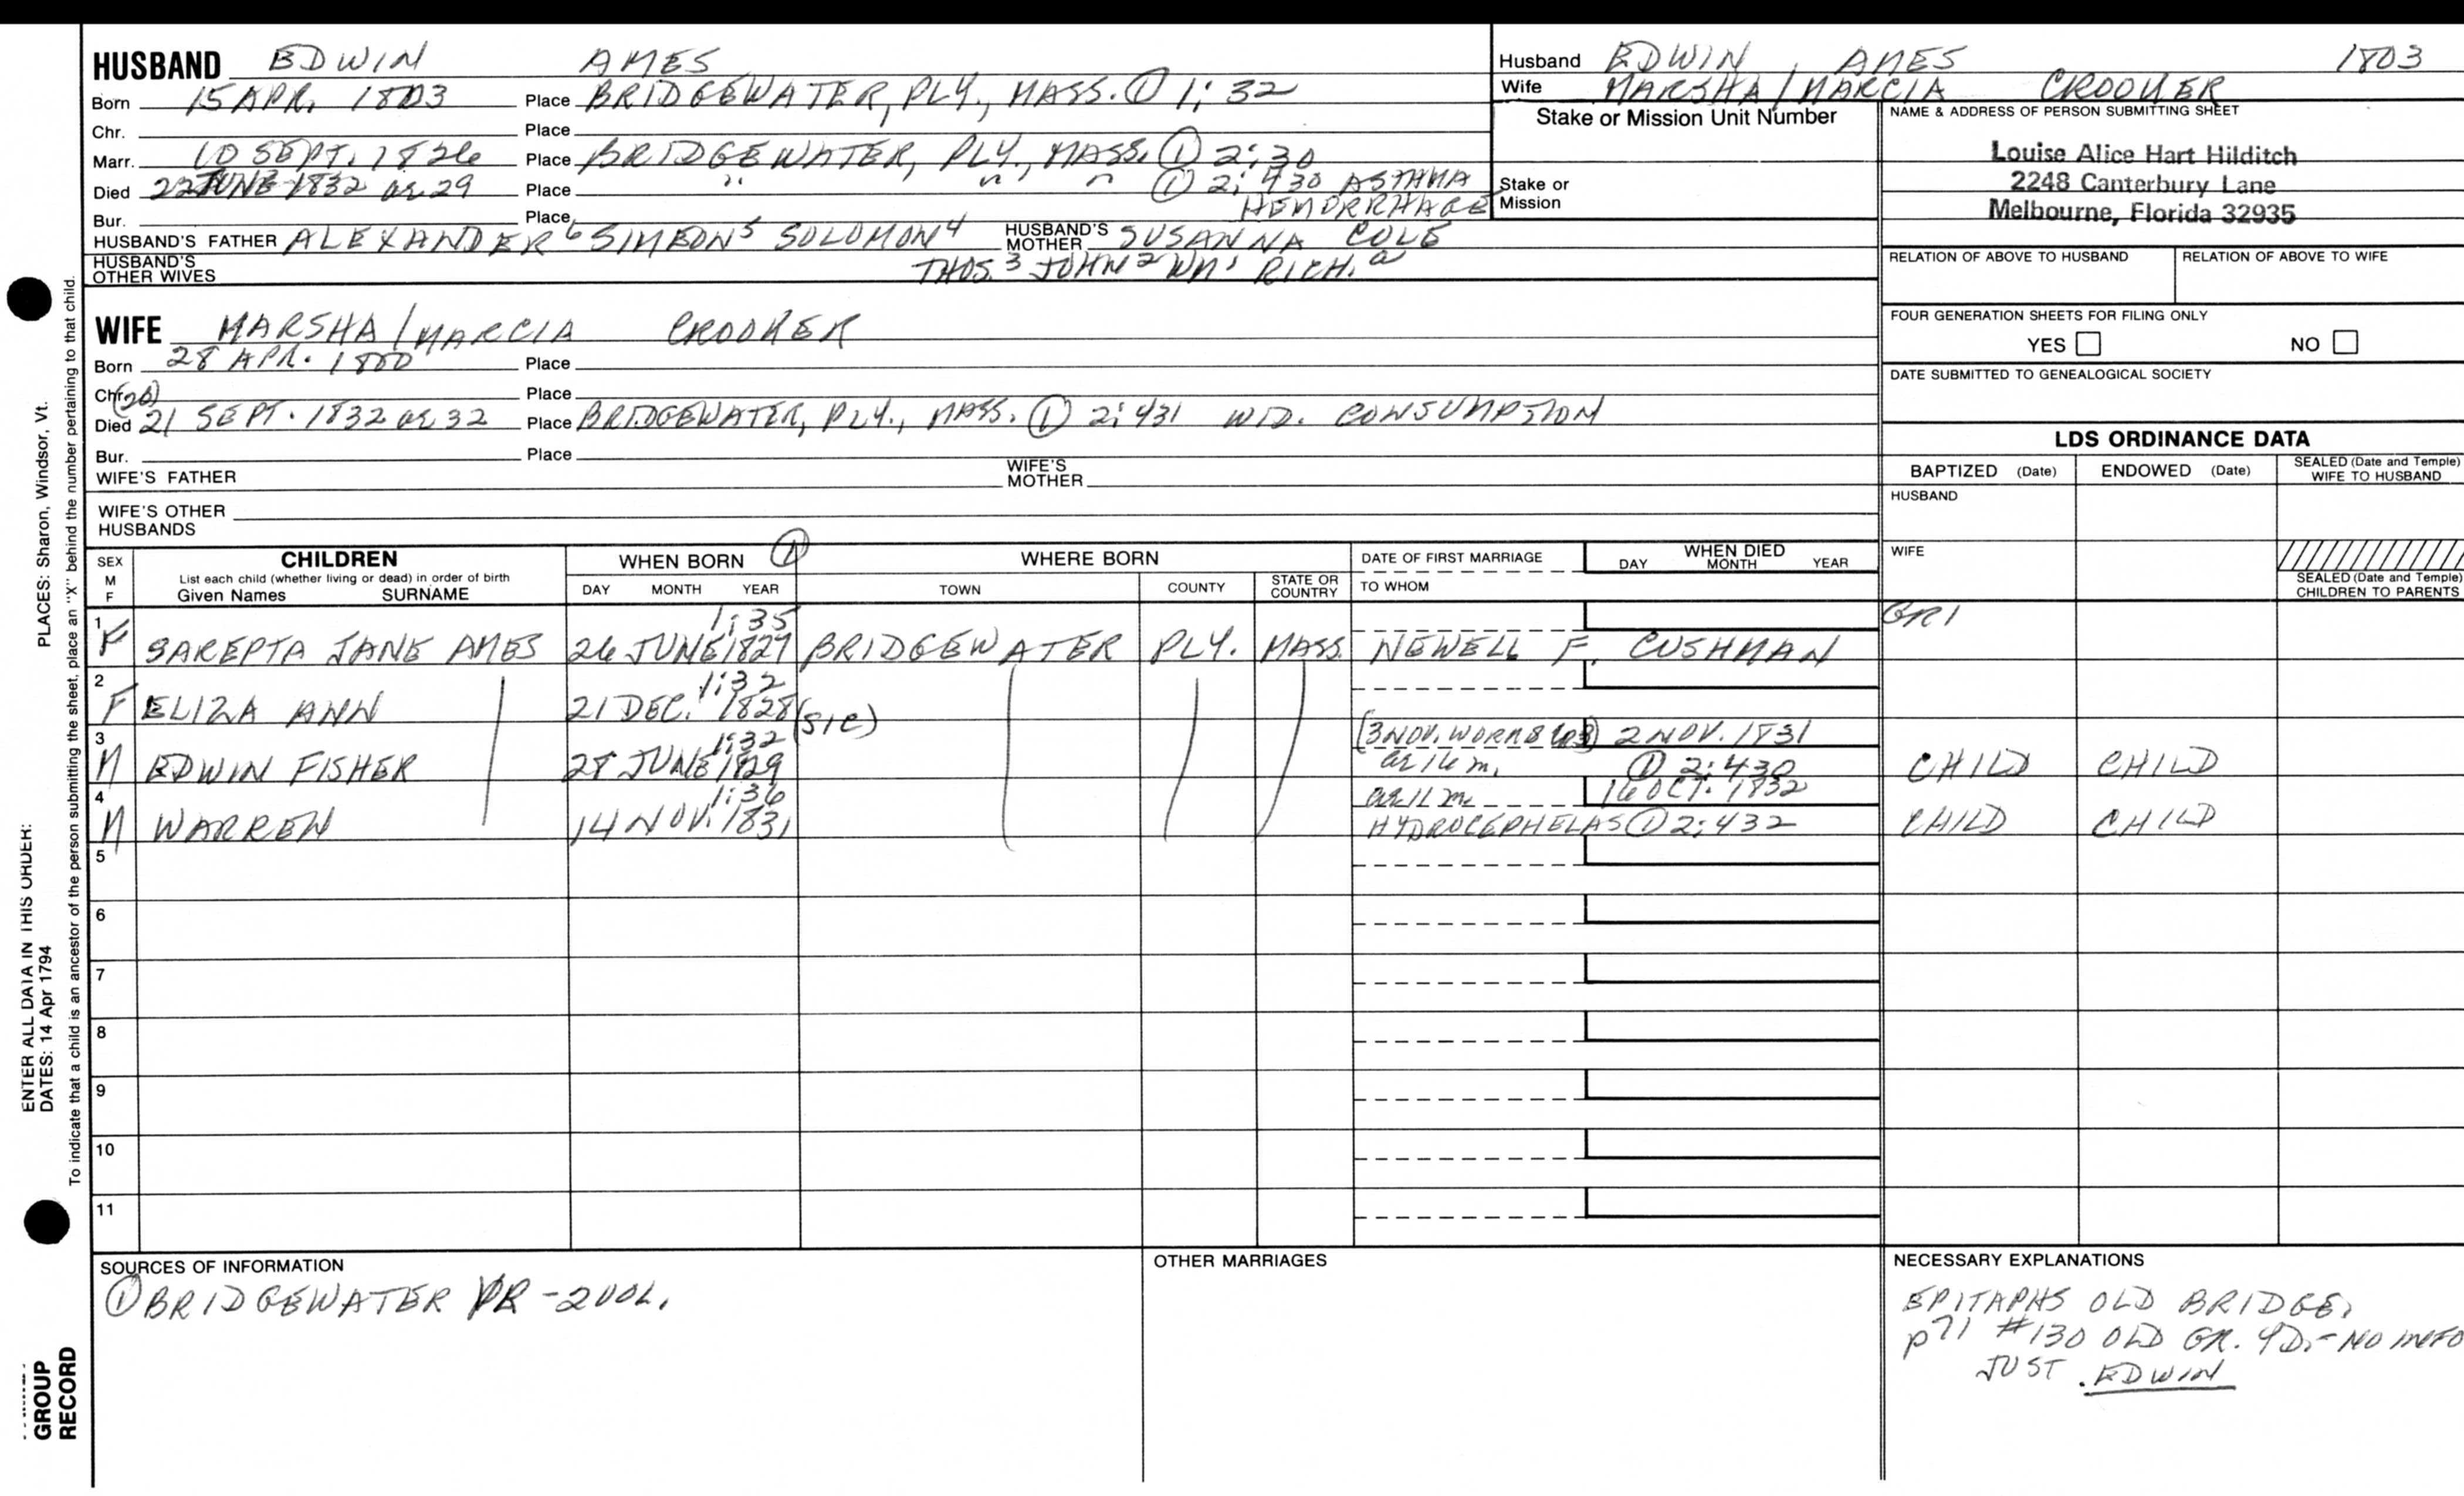 HUSBAND EDWIN AMES
Born 15 APR. 1803 Place BRIDGEWATER, PLY., MASS. ① 1:32
Chr. Place
Marr. 10 SEPT. 1826 Place BRIDGEWATER, PLY., MASS. ① 2:30
Died 22 JUNE 1832 ae 29 Place " " " ① 2:430 ASTHMA
HEMORRHAGE
Bur. Place
HUSBAND'S FATHER ALEXANDER 6 SIMEON 5 SOLOMON 4 HUSBAND'S MOTHER SUSANNA COLE
HUSBAND'S OTHER WIVES THOS. 3 JOHN 2 WM 1 RICH. a
Husband EDWIN AMES 1803
Wife MARSHA/MARCIA CROOKER
Stake or Mission Unit Number
Stake or Mission
NAME & ADDRESS OF PERSON SUBMITTING SHEET
Louise Alice Hart Hilditch
2248 Canterbury Lane
Melbourne, Florida 32935
RELATION OF ABOVE TO HUSBAND RELATION OF ABOVE TO WIFE
FOUR GENERATION SHEETS FOR FILING ONLY
YES NO
DATE SUBMITTED TO GENEALOGICAL SOCIETY
WIFE MARSHA/MARCIA CROOKER
Born 28 APR. 1800 Place
Chr. (20) Place
Died 21 SEPT. 1832 ae 32 Place BRIDGEWATER, PLY., MASS. ① 2:431 WID. CONSUMPTION
Bur. Place
WIFE'S FATHER WIFE'S MOTHER
WIFE'S OTHER HUSBANDS
LDS ORDINANCE DATA
BAPTIZED (Date) ENDOWED (Date) SEALED (Date and Temple) WIFE TO HUSBAND
HUSBAND
WIFE
SEALED (Date and Temple) CHILDREN TO PARENTS
SEX M F CHILDREN WHEN BORN ① WHERE BORN DATE OF FIRST MARRIAGE WHEN DIED
List each child (whether living or dead) in order of birth
Given Names SURNAME DAY MONTH YEAR TOWN COUNTY STATE OR COUNTRY TO WHOM DAY MONTH YEAR
1 1:35 GRI
F SAREPTA JANE AMES 26 JUNE 1827 BRIDGEWATER PLY. MASS. NEWELL F. CUSHMAN
2 1:32
F ELIZA ANN 21 DEC. 1828 (SIC)
3 1:32 (3 NOV. WORMS 2 NOV. 1831
M EDWIN FISHER 28 JUNE 1829 ae 16 m. ① 2:430 CHILD CHILD
4 1:36 ae 11 m. 16 OCT. 1832
M WARREN 14 NOV. 1831 HYDROCEPHELAS ① 2:432 CHILD CHILD
5
6
7
8
9
10
11
SOURCES OF INFORMATION
① BRIDGEWATER VR - 2 VOL.
OTHER MARRIAGES
NECESSARY EXPLANATIONS
EPITAPHS OLD BRIDGE.
p71 #130 OLD GR. YD. - NO INFO
JUST EDWIN
PLACES: Sharon, Windsor, Vt.
ENTER ALL DATA IN THIS ORDER:
DATES: 14 Apr 1794
To indicate that a child is an ancestor of the person submitting the sheet, place an "X" behind the number pertaining to that child.
GROUP
RECORD